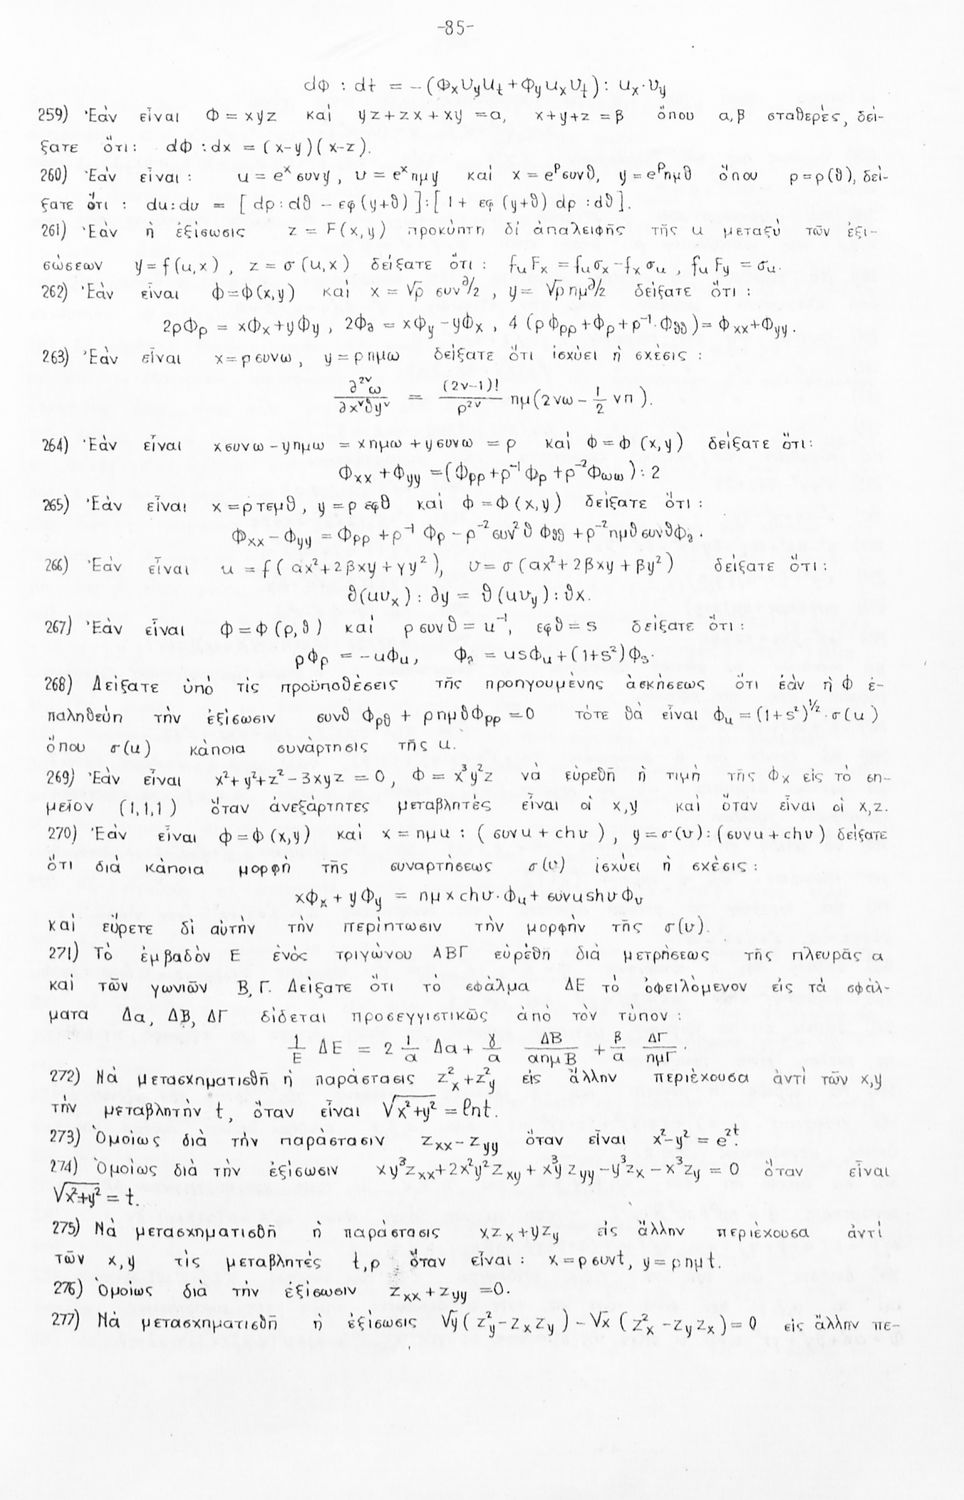 -85-
dΦ : dt = -(ΦₓU_yU_t+Φ_yuₓU_t): uₓ·υ_y
259) Ἐάν εἶναι Φ = xyz καί yz+zx+xy =α, x+y+z =β ὅπου α,β σταθερές, δεί-
ξατε ὅτι: dΦ :dx = (x-y)(x-z).
260) Ἐάν εἶναι : u = eˣσυνy, υ = eˣημy καί x = e^ρσυνθ, y = e^ρημθ ὅπου ρ=ρ(θ), δεί-
ξατε ὅτι : du:dυ = [dρ:dθ - εφ(y+θ)]:[1+ εφ(y+θ) dρ :dθ].
261) Ἐάν ἡ ἐξίσωσις z = F(x,y) προκύπτη δι ἀπαλειφῆς τῆς u μεταξύ τῶν ἐξι-
σώσεων y=f(u,x), z = σ(u,x) δείξατε ὅτι : f_uFₓ = f_uσₓ-fₓσ_u, f_uF_y = σ_u.
262) Ἐάν εἶναι ϕ=ϕ(x,y) καί x = √ρ συν θ/2, y= √ρημ θ/2 δείξατε ὅτι :
2ρΦ_ρ = xΦₓ+yΦ_y, 2Φ_θ = xΦ_y-yΦₓ, 4 (ρΦ_ρρ+Φ_ρ+ρ⁻¹·Φ_θθ)= Φₓₓ+Φ_yy.
263) Ἐάν εἶναι x=ρσυνω, y=ρημω δείξατε ὅτι ἰσχύει ἡ σχέσις :
∂²ᵛω / ∂xᵛ∂yᵛ = (2ν-1)! / ρ²ᵛ ημ(2νω- 1/2 νπ).
264) Ἐάν εἶναι xσυνω-yημω = xημω+yσυνω = ρ καί Φ=Φ (x,y) δείξατε ὅτι:
Φₓₓ+Φ_yy =(Φ_ρρ+ρ⁻¹Φ_ρ+ρ⁻²Φ_ωω): 2
265) Ἐάν εἶναι x=ρτεμθ, y=ρ εφθ καί ϕ=Φ(x,y) δείξατε ὅτι :
Φₓₓ-Φ_yy = Φ_ρρ+ρ⁻¹ Φ_ρ-ρ⁻²συν²θ Φ_θθ +ρ⁻²ημθσυνθΦ_θ.
266) Ἐάν εἶναι u = f( αx²+2βxy+γy²), υ= σ(αx²+2βxy+βy²) δείξατε ὅτι:
∂(uυₓ): ∂y = ∂(uυ_y):∂x.
267) Ἐάν εἶναι Φ=Φ (ρ,θ) καί ρσυνθ= u⁻¹, εφθ = s δείξατε ὅτι :
ρΦ_ρ = -uΦ_u, Φ_θ = usΦ_u+(1+s²)Φ_s.
268) Δείξατε ὑπό τίς προϋποθέσεις τῆς προηγουμένης ἀσκήσεως ὅτι ἐάν ἡ Φ ἐ-
παληθεύη τήν ἐξίσωσιν συνθ Φ_ρθ + ρημθΦ_ρρ =0 τότε θά εἶναι Φ_u = (1+s²)^½·σ(u)
ὅπου σ(u) κάποια συνάρτησις τῆς u.
269) Ἐάν εἶναι x²+y²+z²-3xyz = 0, Φ = x³y²z νά εὑρεθῆ ἡ τιμή τῆς Φₓ εἰς τό ση-
μεῖον (1,1,1) ὅταν ἀνεξάρτητες μεταβλητές εἶναι οἱ x,y καί ὅταν εἶναι οἱ x,z.
270) Ἐάν εἶναι ϕ=ϕ(x,y) καί x = ημu : (συνu+chυ), y=σ(υ):(συνu+chυ) δείξατε
ὅτι διά κάποια μορφή τῆς συναρτήσεως σ(υ) ἰσχύει ἡ σχέσις :
xΦₓ+yΦ_y = ημxchυ·Φ_u+συνushυΦ_υ
καί εὕρετε δι αὐτήν τήν περίπτωσιν τήν μορφήν τῆς σ(υ).
271) Τό ἐμβαδόν E ἑνός τριγώνου ΑΒΓ εὑρέθη διά μετρήσεως τῆς πλευρᾶς α
καί τῶν γωνιῶν Β,Γ. Δείξατε ὅτι τό σφάλμα ΔΕ τό ὀφειλόμενον εἰς τά σφάλ-
ματα Δα, ΔΒ, ΔΓ δίδεται προσεγγιστικῶς ἀπό τόν τύπον :
1/E ΔE = 2 1/α Δα+ γ/α ΔΒ/αημΒ + β/α ΔΓ/ημΓ.
272) Νά μετασχηματισθῆ ἡ παράστασις z²ₓ+z²_y εἰς ἄλλην περιέχουσα ἀντί τῶν x,y
τήν μεταβλητήν t, ὅταν εἶναι √x²+y² = ℓnt.
273) Ὁμοίως διά τήν παράστασιν zₓₓ-z_yy ὅταν εἶναι x²-y² = e²ᵗ.
274) Ὁμοίως διά τήν ἐξίσωσιν xy³zₓₓ+2x²y²zₓy+x³y z_yy-y³zₓ-x³z_y = 0 ὅταν εἶναι
√x²+y² = t.
275) Νά μετασχηματισθῆ ἡ παράστασις xzₓ+yz_y εἰς ἄλλην περιέχουσα ἀντί
τῶν x,y τίς μεταβλητές t,ρ ὅταν εἶναι : x=ρσυνt, y=ρημt.
276) Ὁμοίως διά τήν ἐξίσωσιν zₓₓ+z_yy =0.
277) Νά μετασχηματισθῆ ἡ ἐξίσωσις √y(z²_y-zₓz_y)-√x (z²ₓ-z_yzₓ)=0 εἰς ἄλλην πε-